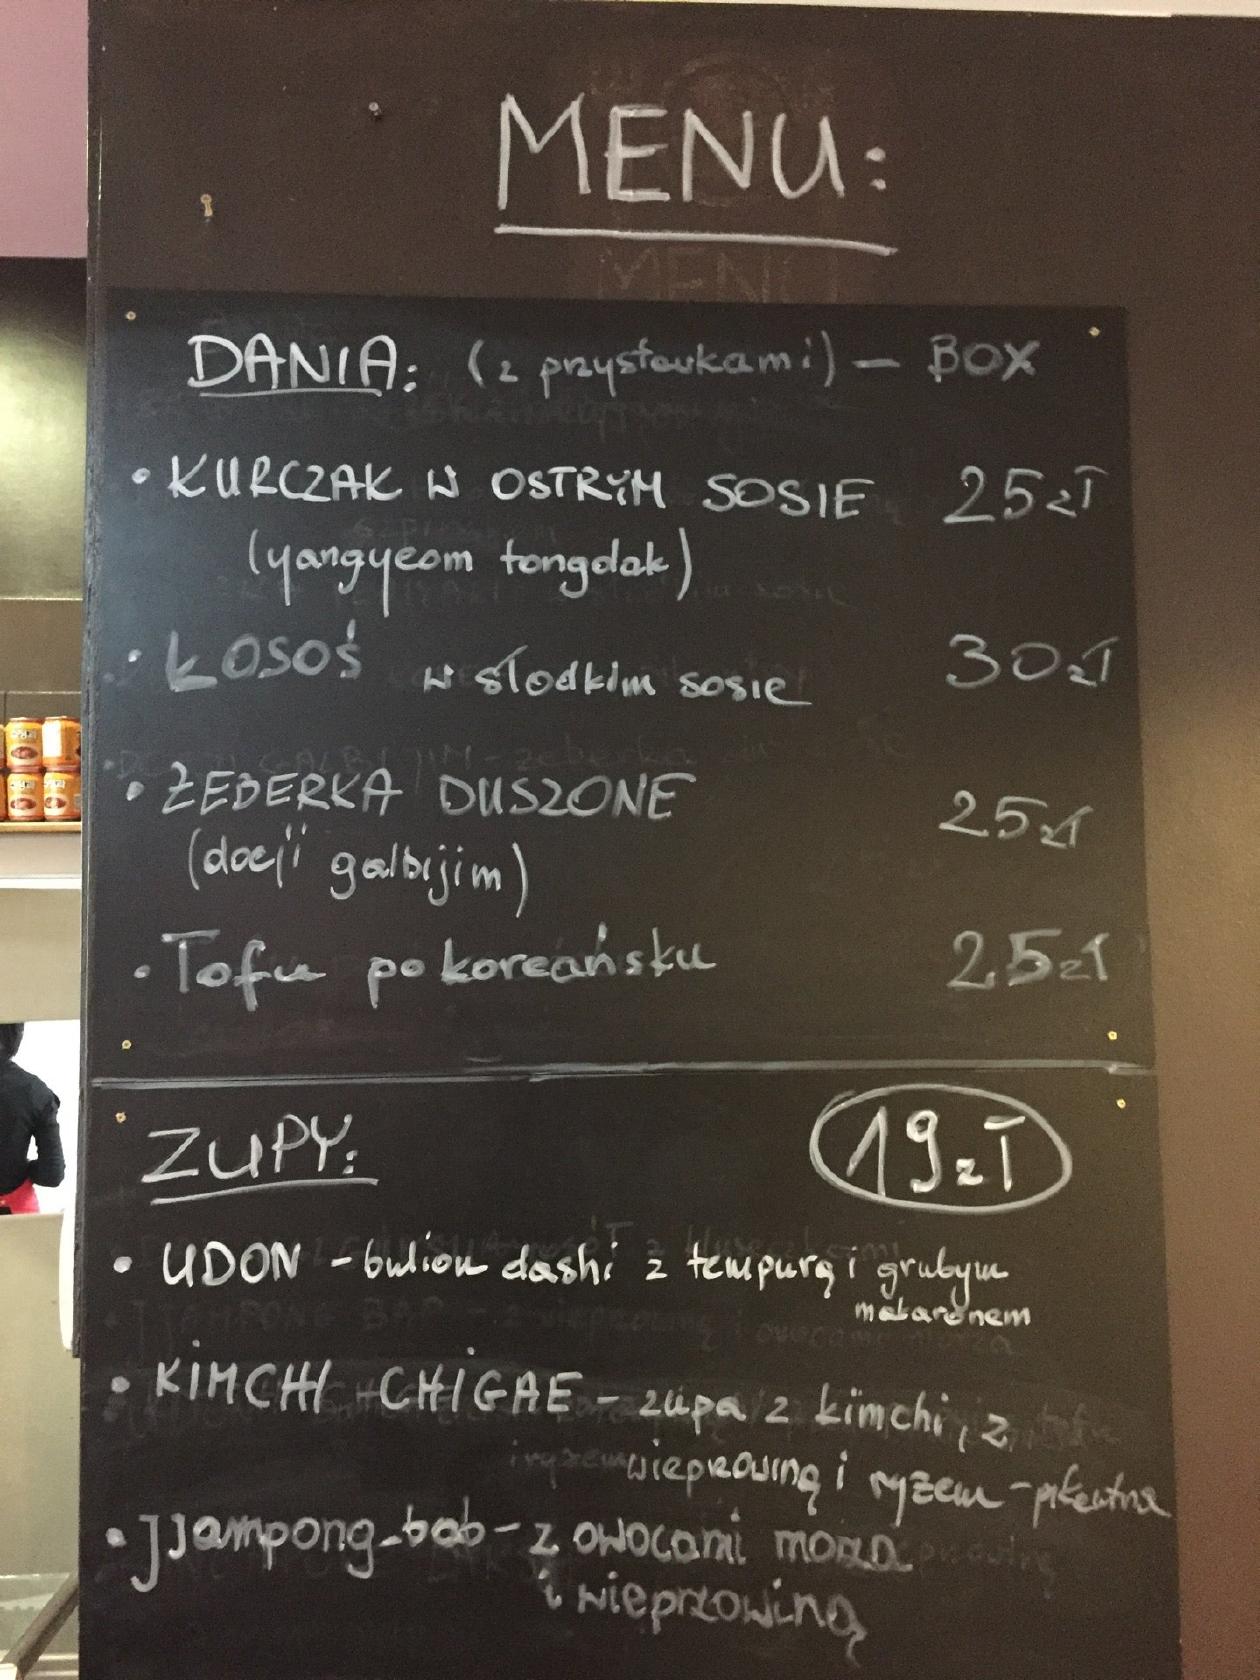 MENU:
DANIA: (z przystawkami) – BOX
• KURCZAK W OSTRYM SOSIE 25zł
(yangyeom tongdak)
• ŁOSOŚ w słodkim sosie 30zł
• ŻEBERKA DUSZONE 25zł
(doeji galbijim)
• Tofu po koreańsku 25zł
ZUPY: 19zł
• UDON – bulion dashi z tempurą i grubym
makaronem
• KIMCHI CHIGAE – zupa z kimchi, z
wieprzowiną i ryżem – pikantna
• Jjampong-bab – z owocami morza
i wieprzowiną